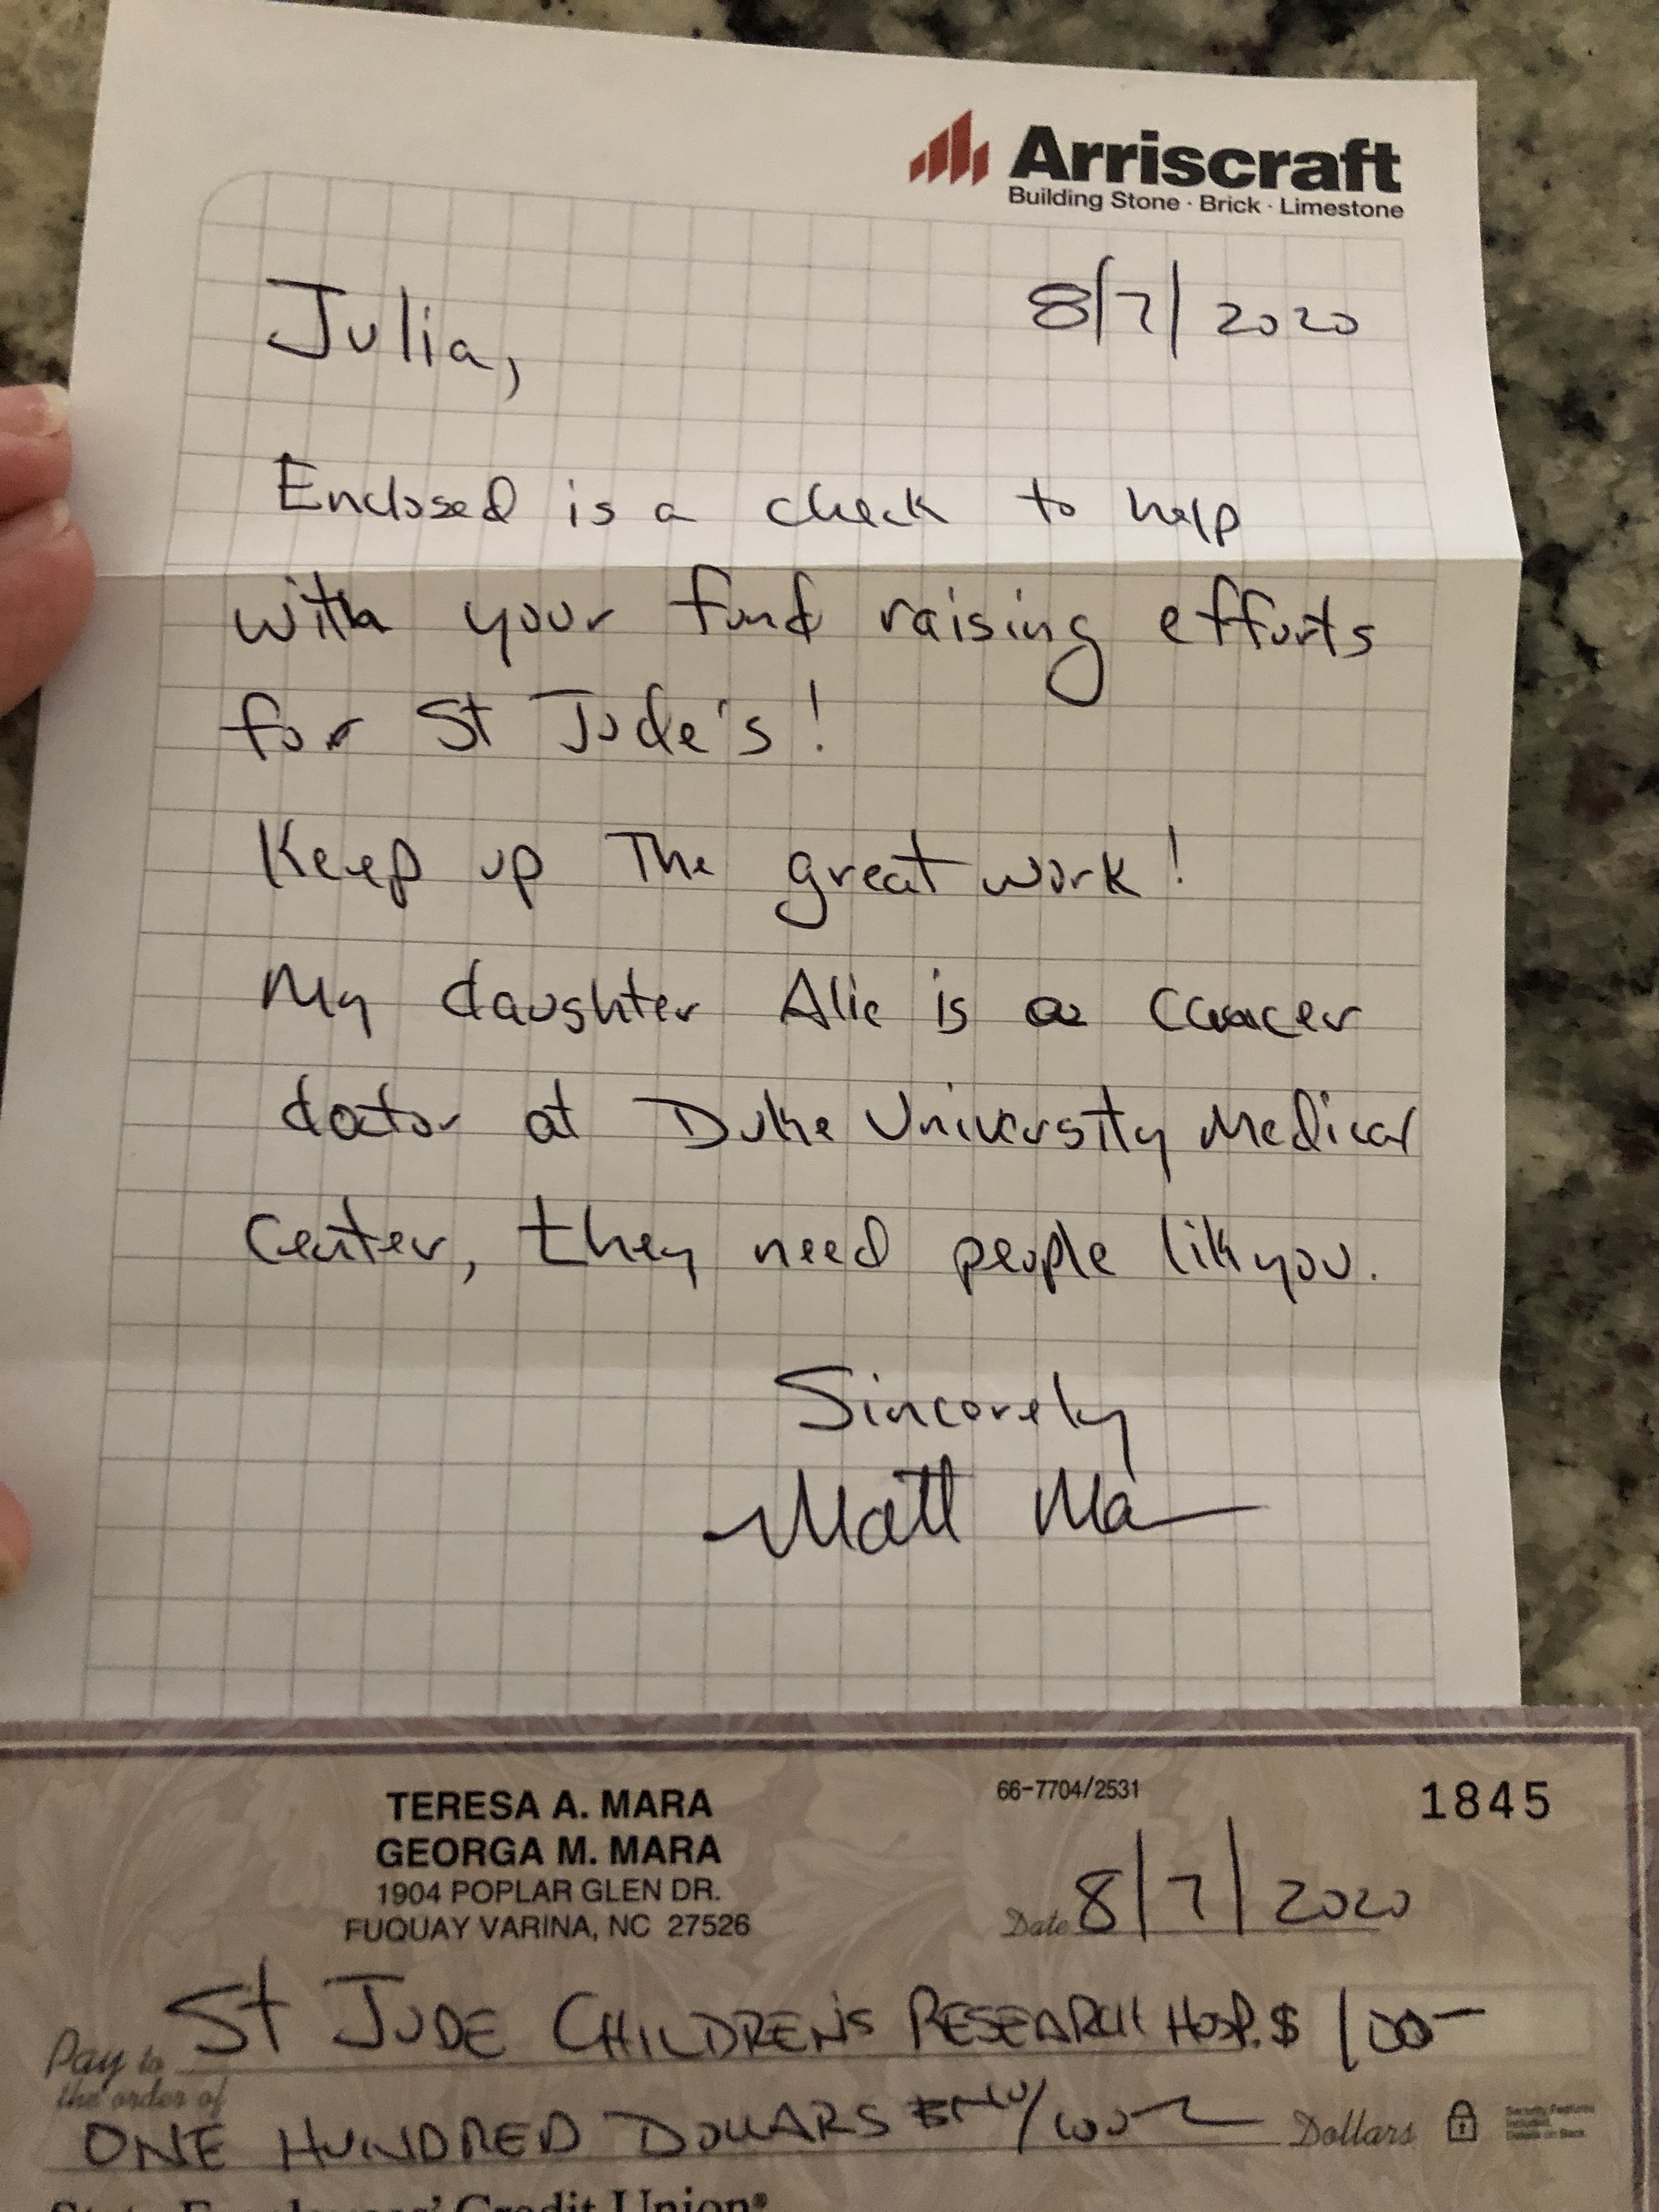 Arriscraft
Building Stone · Brick · Limestone
8/7/2020
Julia,
Enclosed is a check to help
with your fund raising efforts
for St Jude's!
Keep up The great work!
My daughter Alie is a cancer
doctor at Duke University Medical
Center, they need people lik you.
Sincerely
Matt Ma
TERESA A. MARA
GEORGA M. MARA
1904 POPLAR GLEN DR.
FUQUAY VARINA, NC 27526
66-7704/2531
1845
Date 8/7/2020
Pay to the order of St JUDE CHILDREN'S RESEARCH HOSP. $ 100-
ONE HUNDRED DOLLARS /100 Dollars
Security Features
Included.
Details on Back
State Employees' Credit Union®